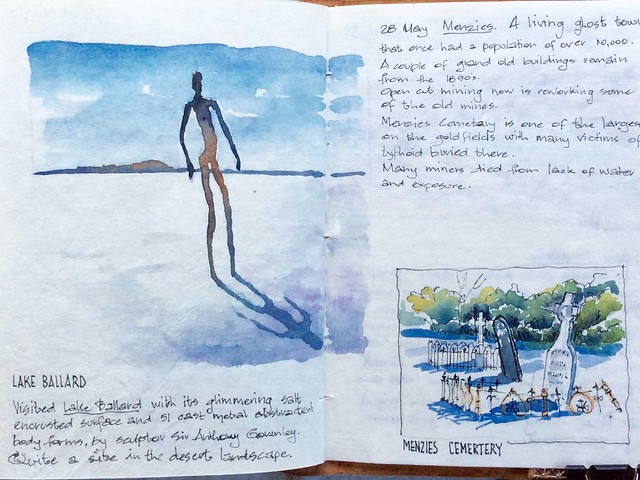 LAKE BALLARD
Visited Lake Ballard with its glimmering salt
encrusted surface and 51 cast metal abstracted
body forms, by sculptor Sir Anthony Gormley.
Quite a site in the desert landscape.
28 May Menzies. A living ghost town
that once had a population of over 10,000.
A couple of grand old buildings remain
from the 1890's.
Open cut mining now is reworking some
of the old mines.
Menzies Cemetary is one of the larges
on the goldfields with many victims of
typhoid buried there.
Many miners died from lack of water
and exposure.
MENZIES CEMERTERY